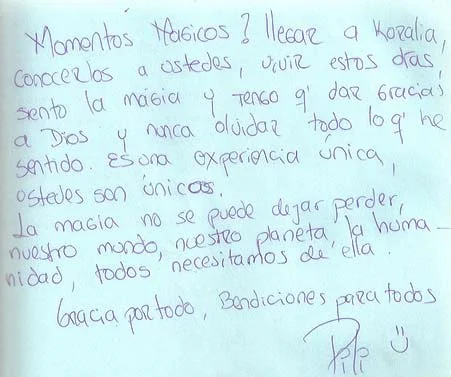 Momentos Magicos? llegar a Koralia,
conocerlos a ustedes, vivir estos dias,
siento la magia y tengo q' dar gracias
a Dios y nunca olvidar todo lo q' he
sentido. Es una experiencia única,
ustedes son únicos.
La magia no se puede dejar perder,
nuestro mundo, nuestro planeta, la huma-
nidad, todos necesitamos de ella.
Gracia por todo, Bendiciones para todos
Pili